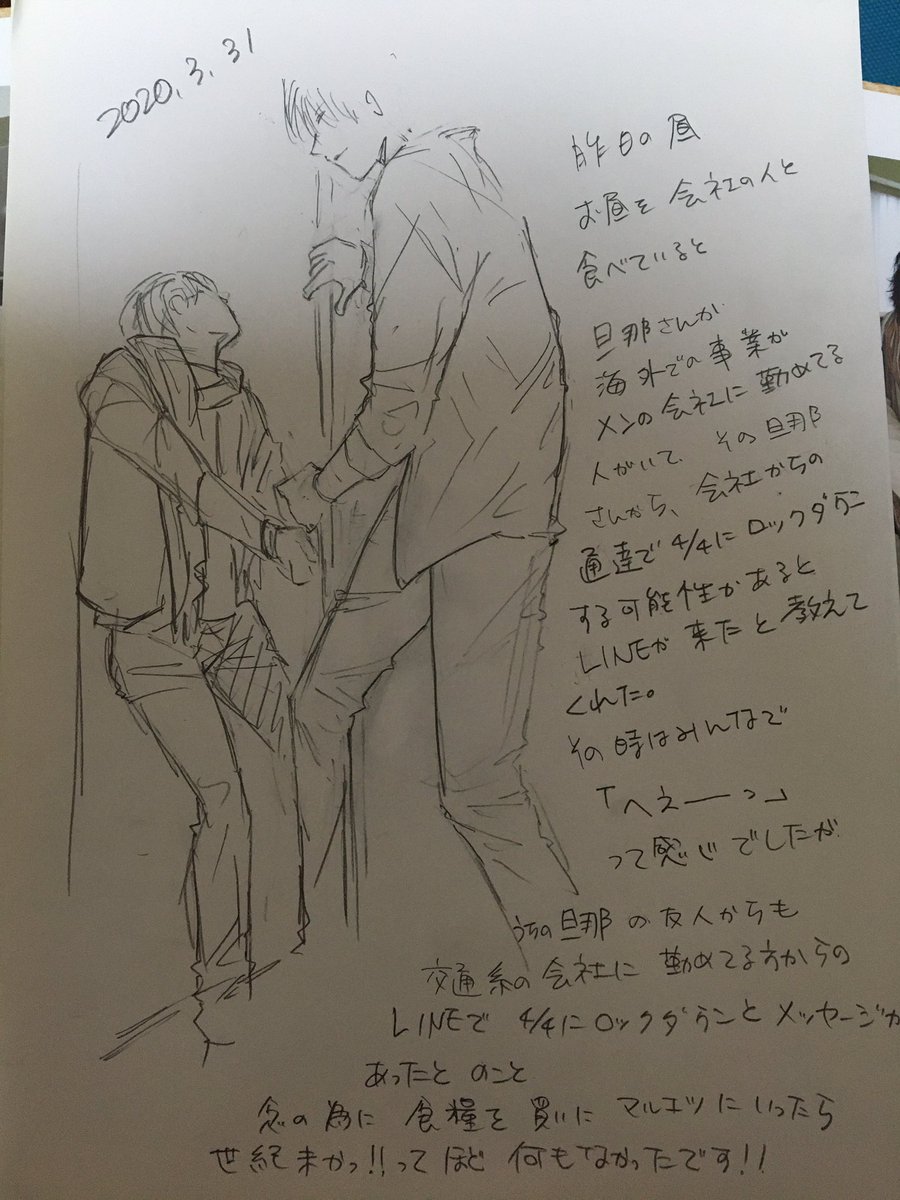 2020.3.31
昨日の昼
お昼を会社の人と
食べていると
旦那さんが
海外での事業が
メンの会社に勤めてる
人がいて、その旦那
さんから、会社からの
通達で4/4にロックダウン
する可能性があると
LINEが来たと教えて
くれた。
その時はみんなで
「へえーっ」
って感心でしたが
うちの旦那の友人からも
交通系の会社に勤めてる方からの
LINEで4/4にロックダウンとメッセージが
あったとのこと
念の為に食糧を買いにマルエツにいったら
世紀末かっ!!ってほど何もなかったです!!